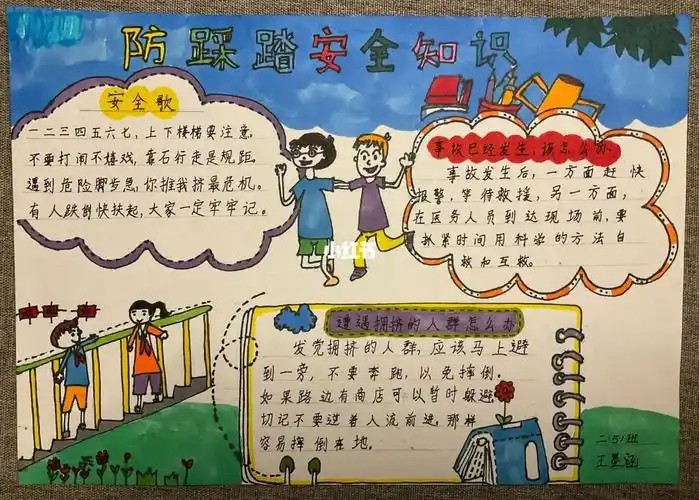 防踩踏安全知识
安全歌
一二三四五六七，上下楼梯要注意，
不要打闹不嬉戏，靠右行走是规距。
遇到危险脚步急，你推我挤最危机。
有人跌倒快扶起，大家一定牢牢记。
事故已经发生，该怎么办
事故发生后，一方面赶快
报警，等待救援，另一方面，
在医务人员到达现场前，要
抓紧时间用科学的方法自
救和互救。
小红书
遭遇拥挤的人群怎么办
发觉拥挤的人群，应该马上避
到一旁，不要奔跑，以免摔倒。
如果路边有商店可以暂时躲避
切记不要逆着人流前进，那样
容易摔倒在地。
二（5）班
王墨涵